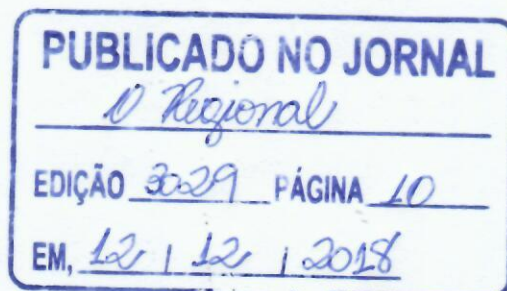 PUBLICADO NO JORNAL
O Regional
EDIÇÃO 3029 PÁGINA 10
EM, 12 / 12 / 2018